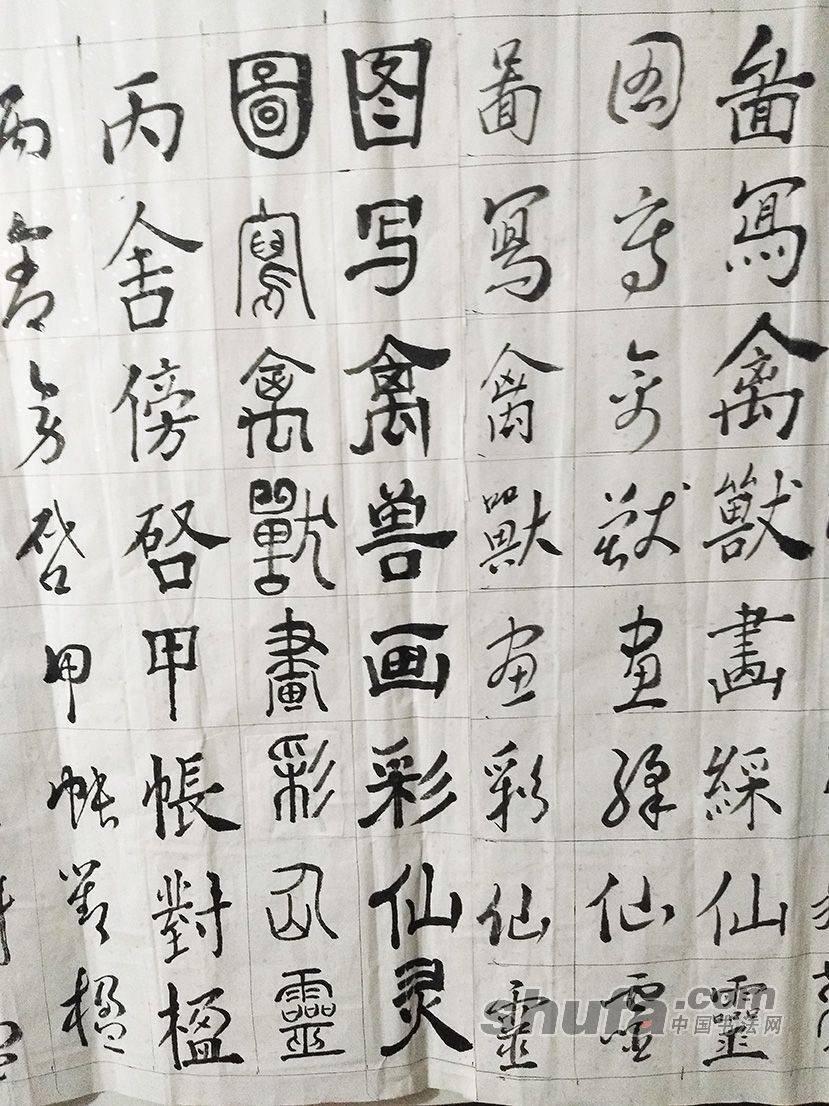 啚寫禽獸畵綵仙靈
图写禽獸畫綵仙靈
啚寫禽獸画彩仙靈
图写禽兽画彩仙灵
圖寫禽獸畫彩仙靈
丙舍傍啓甲帳對楹
丙舍旁启甲帐對楹
shufa.com
中国书法网